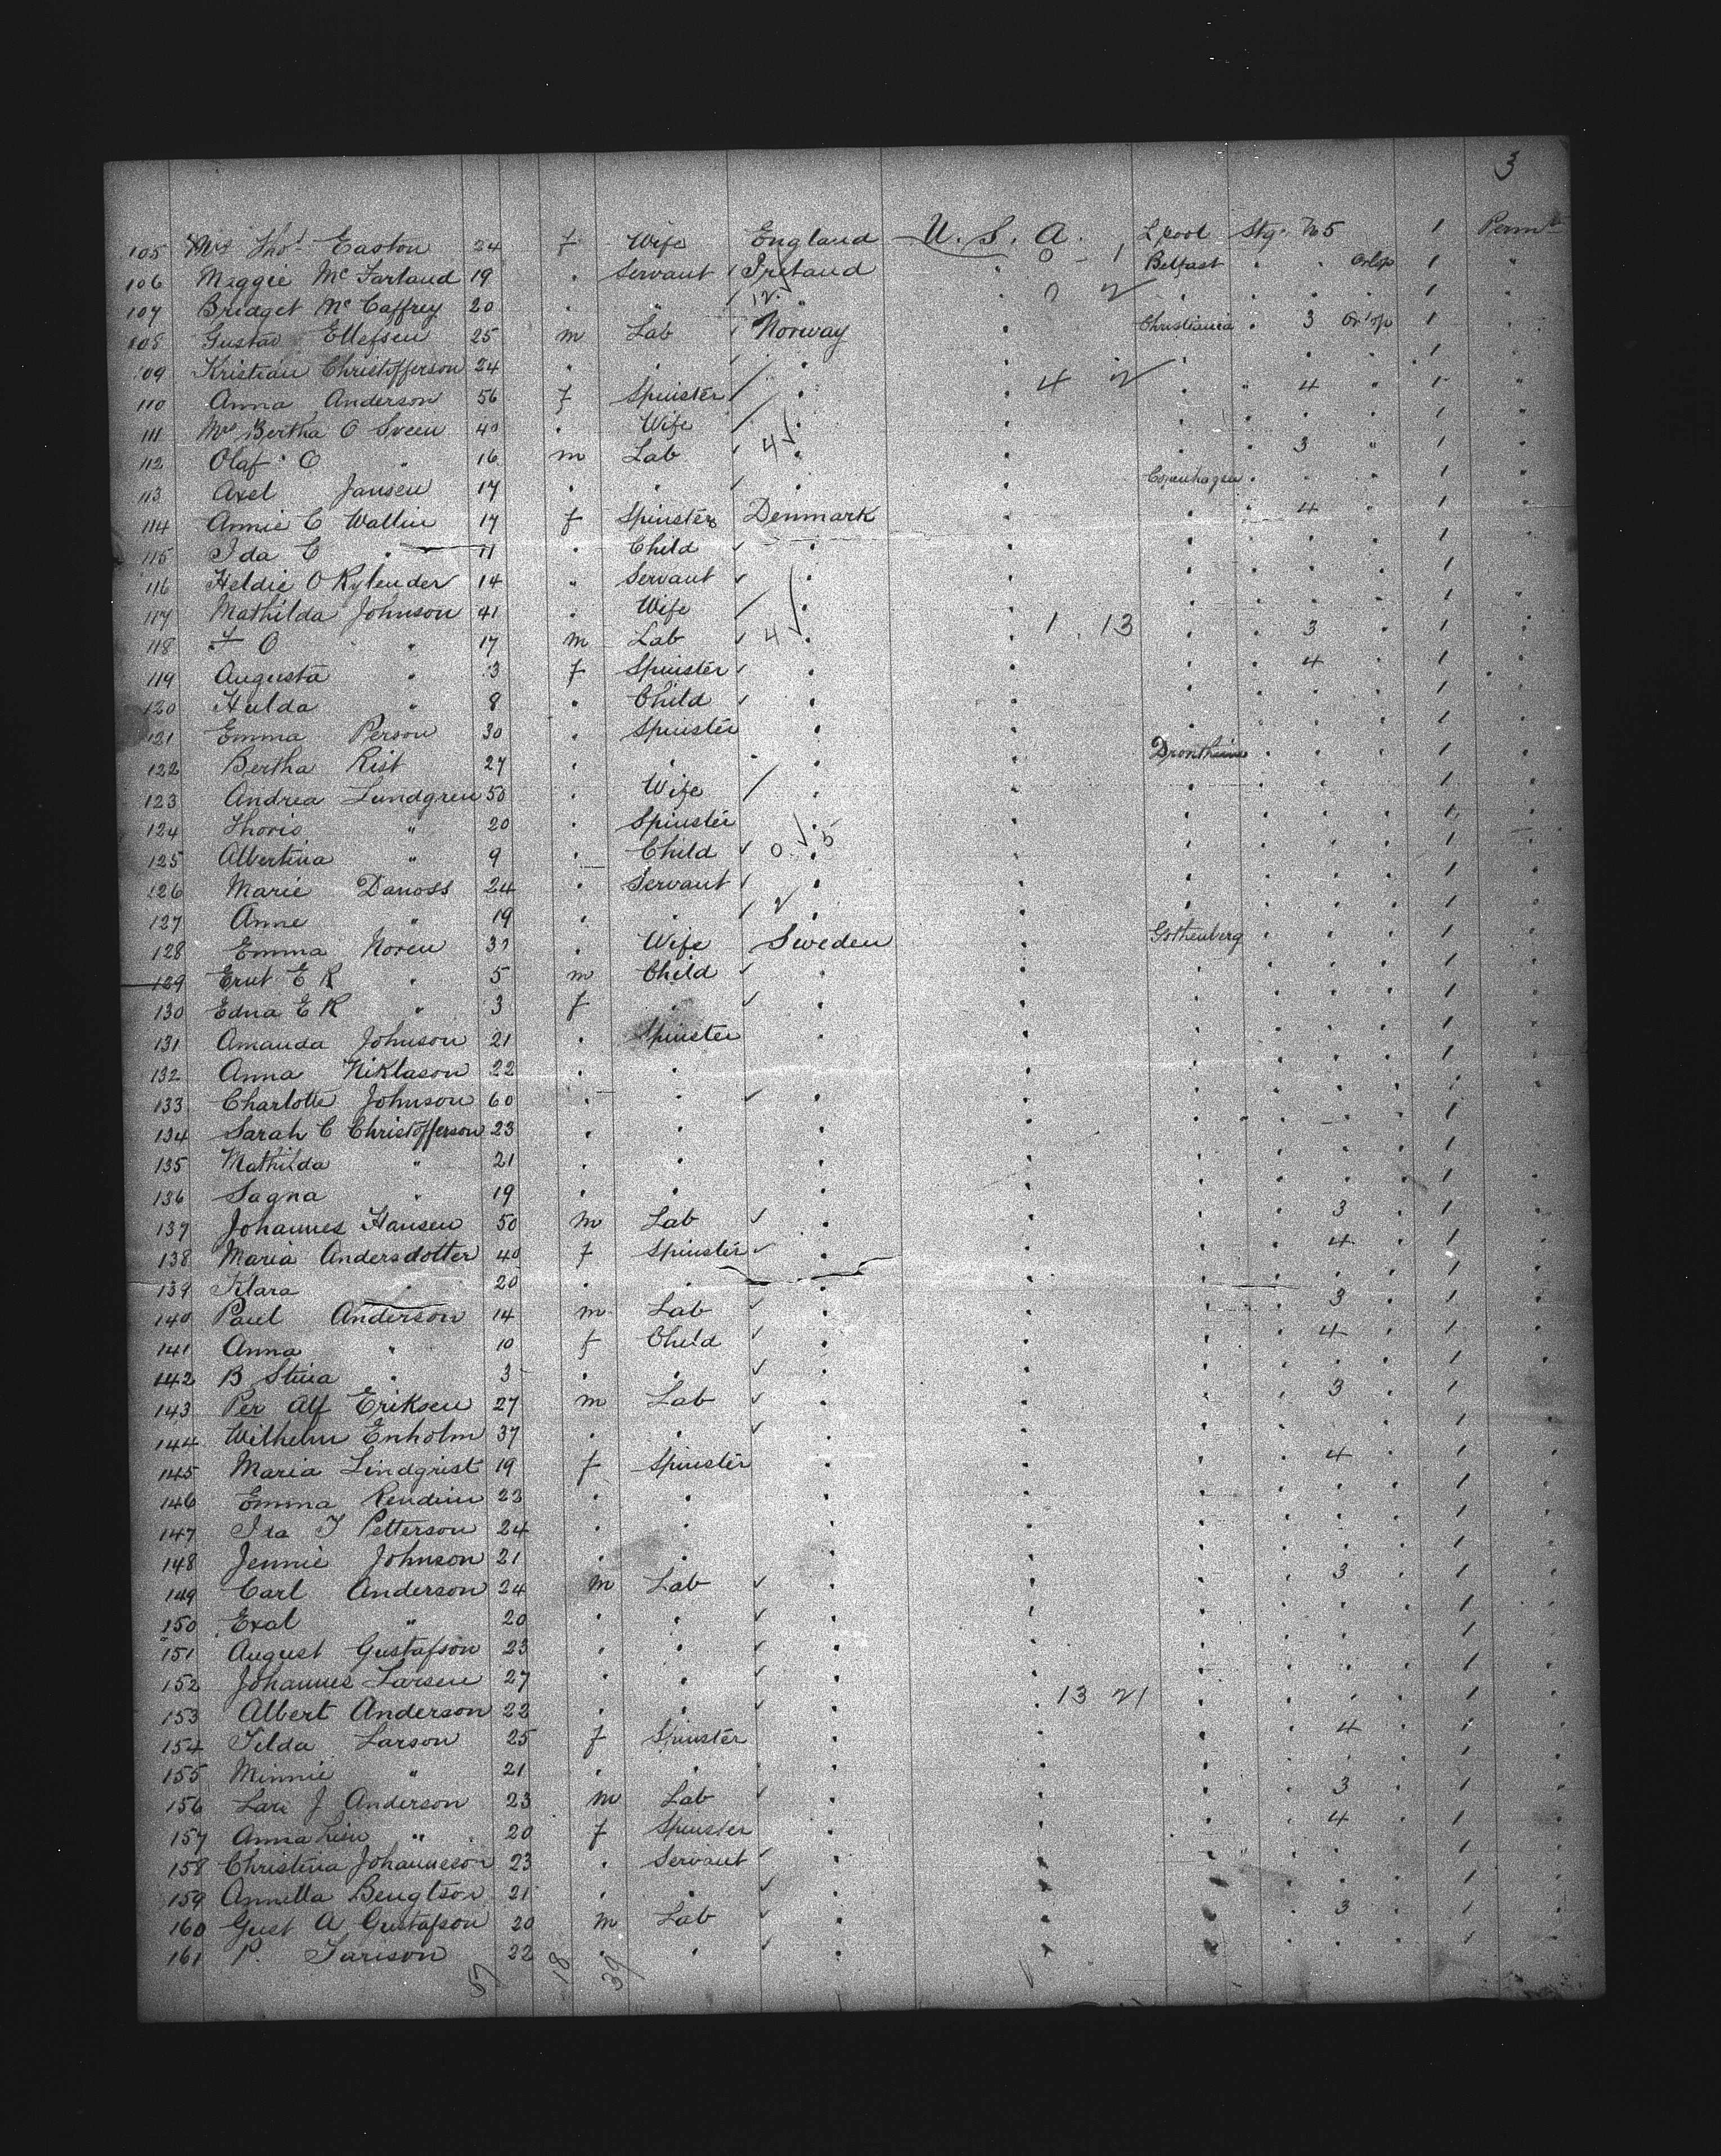 3
105 Mrs Thos Easton 24 f Wife England U. S. A. 0 - 1 L'pool Stg. No 5 1 Permt
106 Maggie McFarland 19 " Servant Ireland " Belfast " " Orlop 1 "
107 Bridget McCaffrey 20 " " 12 " " 2 " " " " 1 "
108 Gustav Ellefsen 25 m Lab Norway " Christiania " 3 Orlop 1 "
109 Kristian Christofferson 24 " " " " " " " " 1 "
110 Anna Anderson 56 f Spinster " " 4 2 " " 4 " 1 "
111 Mrs Bertha O Sveen 40 " Wife " " " " " " 1 "
112 Olaf O " 16 m Lab 4 " " " " 3 " 1 "
113 Axel Jansen 17 " " " " Copenhagen " " " 1 "
114 Annie C Wallin 17 f Spinster Denmark " " " 4 " 1 "
115 Ida C " 11 " Child " " " " " " 1 "
116 Heldie O Rylender 14 " Servant " " " " " " 1 "
117 Mathilda Johnson 41 " Wife " " " " " " 1 "
118 F O " 17 m Lab 4 " " 1 . 13 " " 3 " 1 "
119 Augusta " 13 f Spinster " " " " 4 " 1 "
120 Hulda " 8 " Child " " " " " " 1 "
121 Emma Person 30 " Spinster " " " " " " 1 "
122 Bertha Rist 27 " " " " Drontheim " " " 1 "
123 Andrea Lundgren 50 " Wife " " " " " " 1 "
124 Thoris " 20 " Spinster " " " " " " 1 "
125 Albertina " 9 " Child 0 " 5 " " " " " 1 "
126 Marie Danoss 24 " Servant " " " " " " 1 "
127 Anne " 19 " " 2 " " " " " " 1 "
128 Emma Noren 37 " Wife Sweden " Gothenberg " " " 1 "
129 Ernt E R " 5 m Child " " " " " " 1 "
130 Edna E R " 3 f " " " " " " " 1 "
131 Amanda Johnson 21 " Spinster " " " " " " 1 "
132 Anna Niklason 22 " " " " " " " " 1 "
133 Charlotte Johnson 60 " " " " " " " " 1 "
134 Sarah C Christofferson 23 " " " " " " " " 1 "
135 Mathilda " 21 " " " " " " " " 1 "
136 Sagna " 19 " " " " " " " " 1 "
137 Johannes Hansen 50 m Lab " " " " 3 " 1 "
138 Maria Andersdotter 40 f Spinster " " " " 4 " 1 "
139 Klara " 20 " " " " " " " " 1 "
140 Paul Anderson 14 m Lab " " " " 3 " 1 "
141 Anna " 10 f Child " " " " 4 " 1 "
142 B Stina " 3 " " " " " " " " 1 "
143 Per Alf Eriksen 27 m Lab " " " " 3 " 1 "
144 Wilhelm Enholm 37 " " " " " " " " 1 "
145 Maria Lindgrist 19 f Spinster " " " " 4 " 1 "
146 Emma Rendin 23 " " " " " " " " 1 "
147 Ida J Petterson 24 " " " " " " " " 1 "
148 Jennie Johnson 21 " " " " " " " " 1 "
149 Carl Anderson 24 m Lab " " " " 3 " 1 "
150 Exal " 20 " " " " " " " " 1 "
151 August Gustafson 23 " " " " " " " " 1 "
152 Johannes Larsen 27 " " " " " " " " 1 "
153 Albert Anderson 22 " " " " 13 21 " " " " 1 "
154 Tilda Larson 25 f Spinster " " " " 4 " 1 "
155 Minnie " 21 " " " " " " " " 1 "
156 Lars J Anderson 23 m Lab " " " " 3 " 1 "
157 Anna Lisa " 20 f Spinster " " " " 4 " 1 "
158 Christina Johanneson 23 " Servant " " " " " " 1 "
159 Annetta Bengtson 21 " " " " " " " " 1 "
160 Gust A Gustafson 20 m Lab " " " " 3 " 1 "
161 P. Tarison 22 " " " " " " " " 1 "
57 18 39